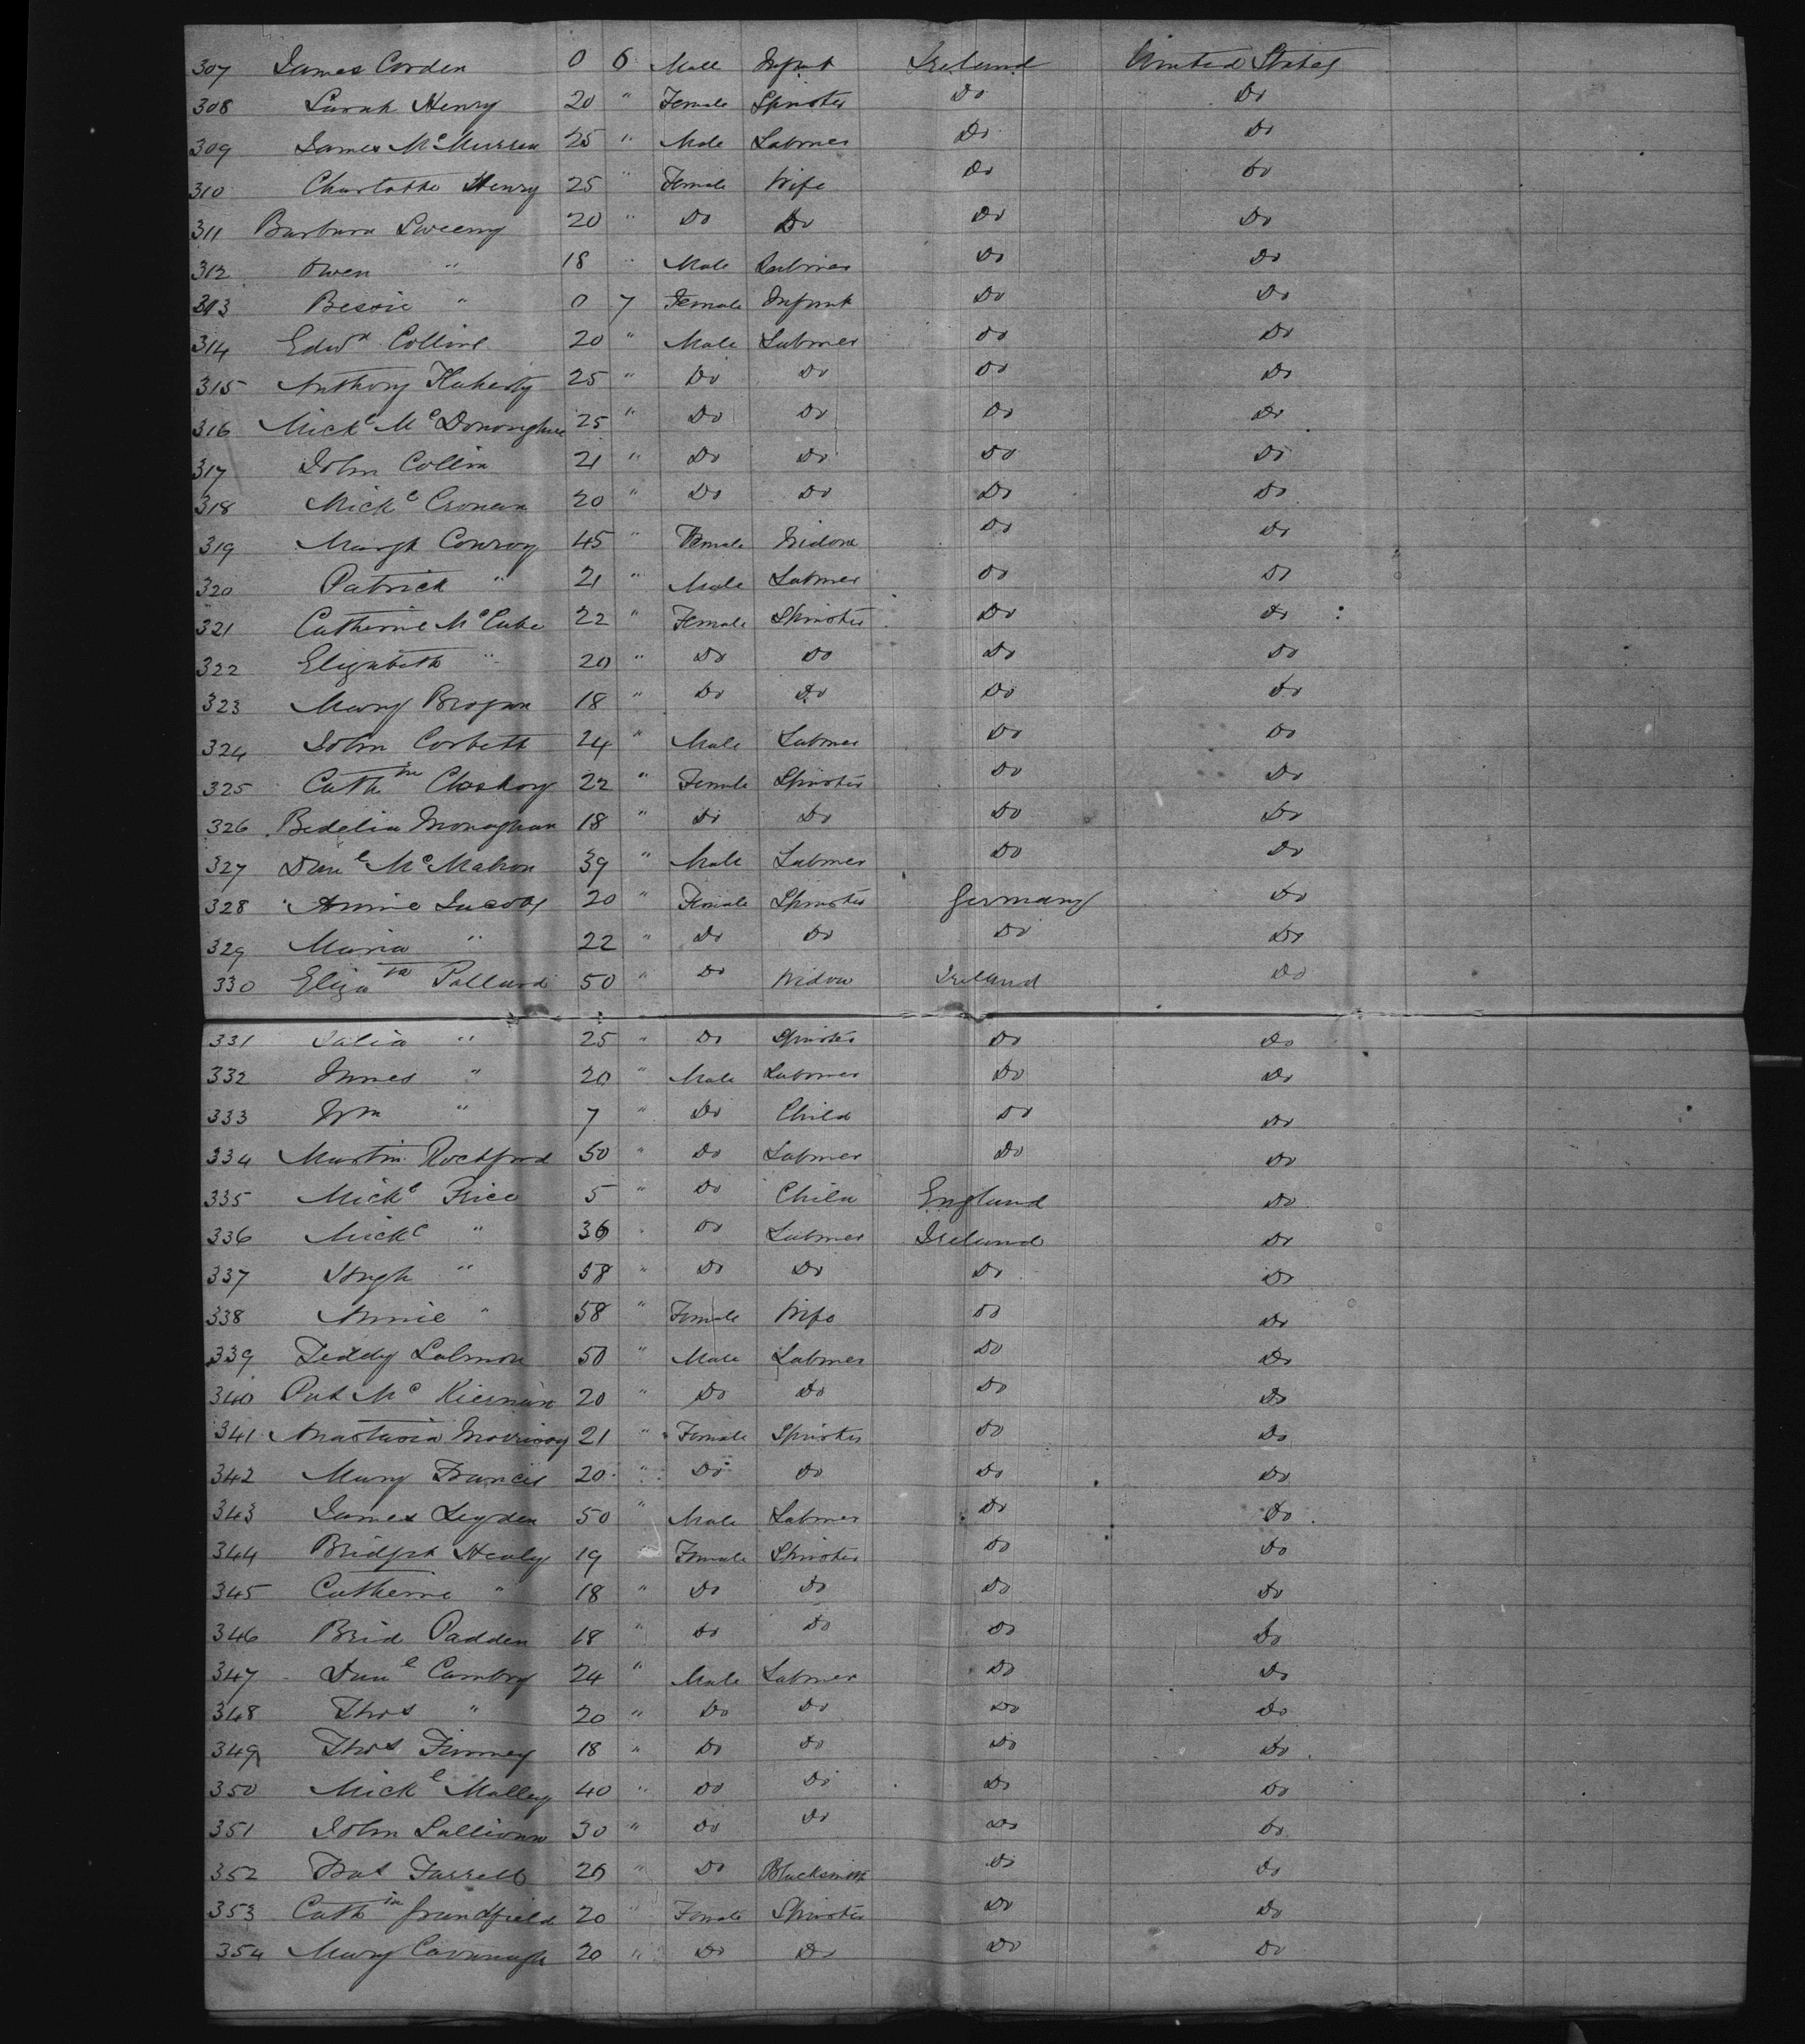 307 James Corden 0 6 Male Infant Ireland United States
308 Sarah Henry 20 " Female Spinster Do Do
309 James McMurren 25 " Male Labourer Do Do
310 Charlotte Henry 25 " Female Wife Do Do
311 Barbara Sweeny 20 " Do Do Do Do
312 Owen " 18 " Male Labourer Do Do
313 Bessie " 0 7 Female Infant Do Do
314 Edwd Collins 20 " Male Labourer Do Do
315 Anthony Flaherty 25 " Do Do Do Do
316 Mickl McDonoughue 25 " Do Do Do Do
317 John Collin 21 " Do Do Do Do
318 Mickl Cronan 20 " Do Do Do Do
319 Margt Conroy 45 " Female Widow Do Do
320 Patrick " 21 " Male Labourer Do Do
321 Catherine McCabe 22 " Female Spinster Do Do
322 Elizabeth " 20 " Do Do Do Do
323 Mary Brogan 18 " Do Do Do Do
324 John Corbett 24 " Male Labourer Do Do
325 Cathne Claskey 22 " Female Spinster Do Do
326 Bedelia Monaghan 18 " Do Do Do Do
327 Danl McMahon 39 " Male Labourer Do Do
328 Annie Jacobs 20 " Female Spinster Germany Do
329 Maria " 22 " Do Do Do Do
330 Elizath Pollard 50 " Do Widow Ireland Do
331 Julia " 25 " Do Spinster Do Do
332 James " 20 " Male Labourer Do Do
333 Wm " 7 " Do Child Do Do
334 Martin Rochford 50 " Do Labourer Do Do
335 Mickl Price 5 " Do Child England Do
336 Mickl " 36 " Do Labourer Ireland Do
337 Hugh " 58 " Do Do Do Do
338 Annie " 58 " Female Wife Do Do
339 Teddy Salmon 50 " Male Labourer Do Do
340 Pat Mc Kiernan 20 " Do Do Do Do
341 Anastasia Morrissy 21 " Female Spinster Do Do
342 Mary Francis 20 " Do Do Do Do
343 James Leyden 50 " Male Labourer Do Do
344 Bridget Healy 19 Female Spinster Do Do
345 Catherine " 18 " Do Do Do Do
346 Brid Padden 18 " Do Do Do Do
347 Danl Cambry 24 " Male Labourer Do Do
348 Thos " 20 " Do Do Do Do
349 Thos Finney 18 " Do Do Do Do
350 Mickl Malley 40 " Do Do Do Do
351 John Sullivan 30 " Do Do Do Do
352 Farrell " Do Blacksmith Do Do
353 Cathin Grandfield 20 " Female Spinster Do Do
354 Mary Cavanagh 20 " Do Do Do Do